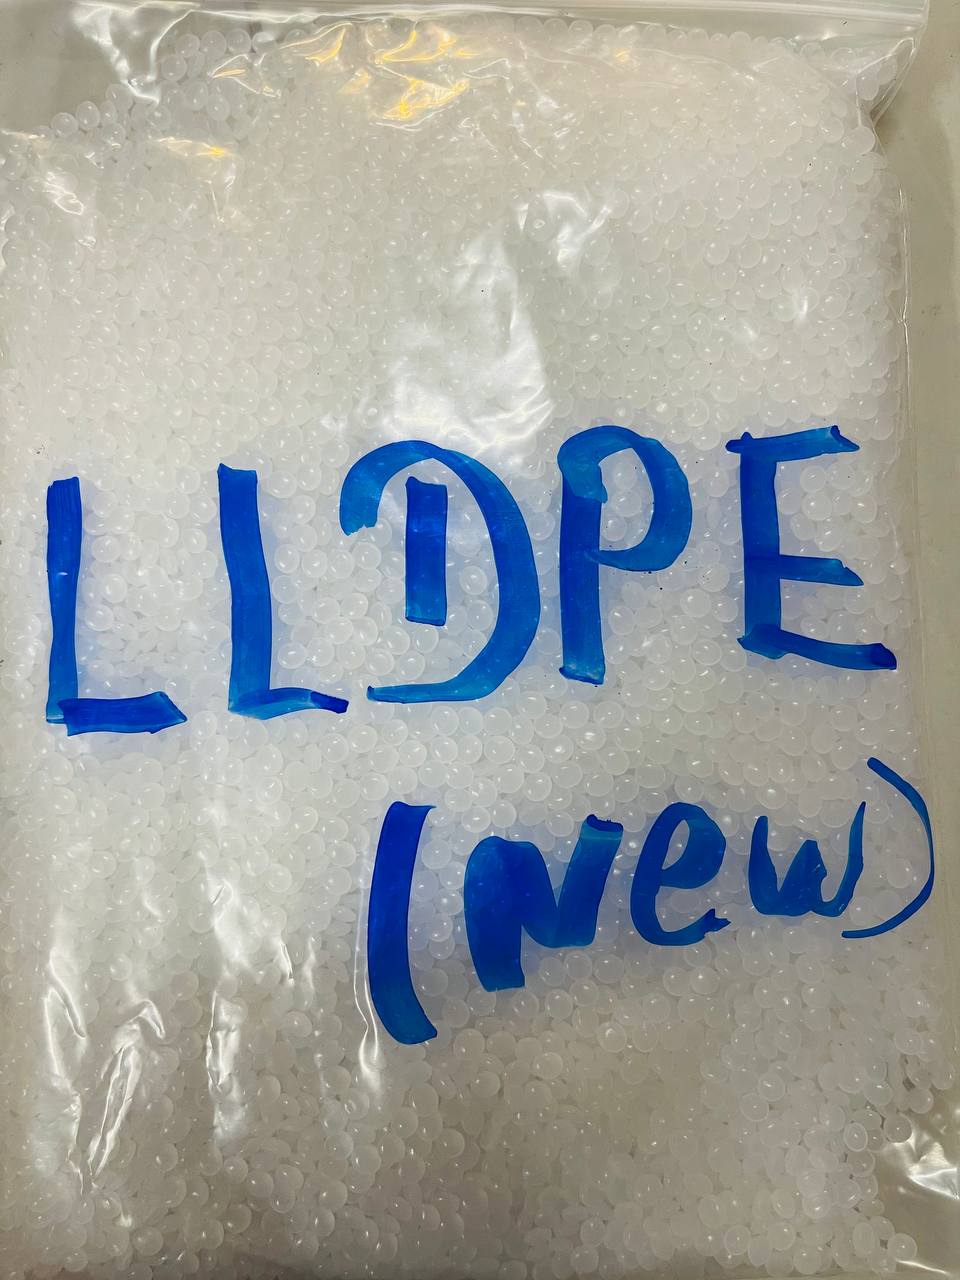 LLDPE
(New)